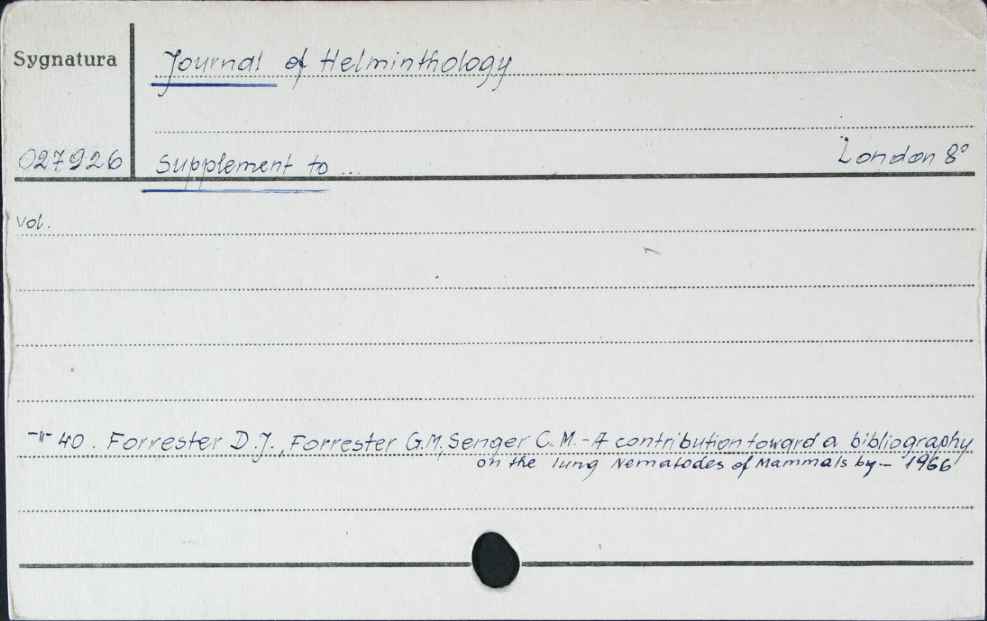 Sygnatura
Journal of Helminthology
027926
Supplement to ...
London 8°
vol.
-"- 40. Forrester D.J., Forrester G.M, Senger C.M. - A contribution toward a bibliography
on the lung Nematodes of Mammals by - 1966